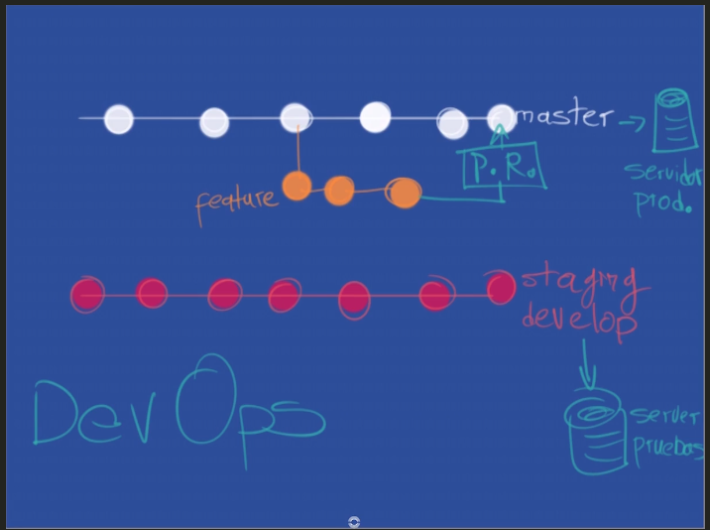 master
servidor
prod.
P.R.
feature
staging
develop
DevOps
server
pruebas